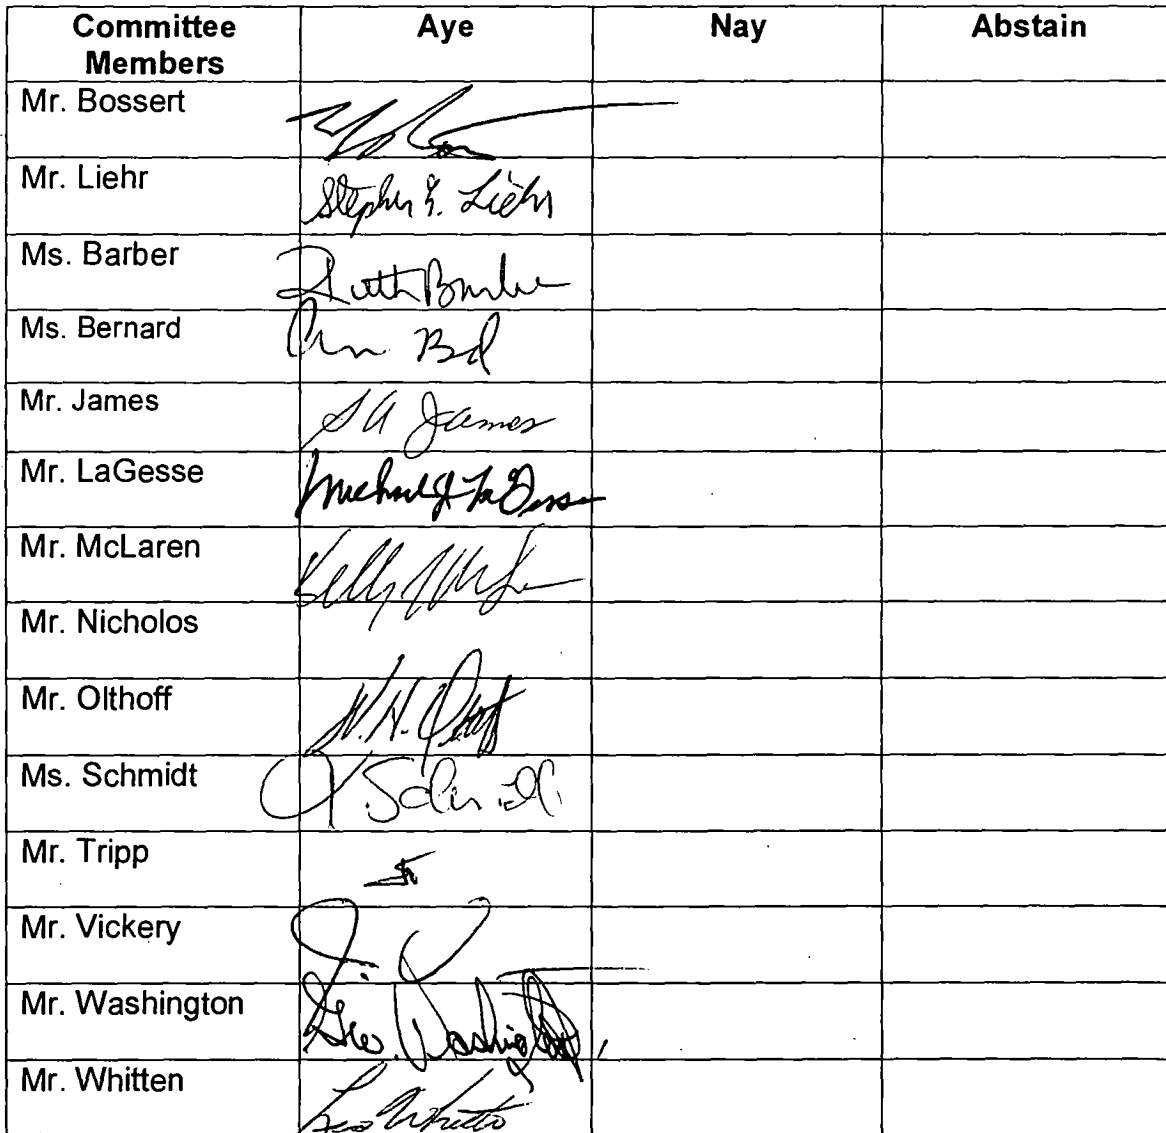 Committee Members Aye Nay Abstain
Mr. Bossert
Mr. Liehr Stephen G. Liehr
Ms. Barber Ruth Barber
Ms. Bernard Ann
Mr. James SA James
Mr. LaGesse Michael J. LaGesse
Mr. McLaren Kelly
Mr. Nicholos
Mr. Olthoff W.H.
Ms. Schmidt Schmidt
Mr. Tripp
Mr. Vickery
Mr. Washington Geo. Washington
Mr. Whitten Leo Whitten